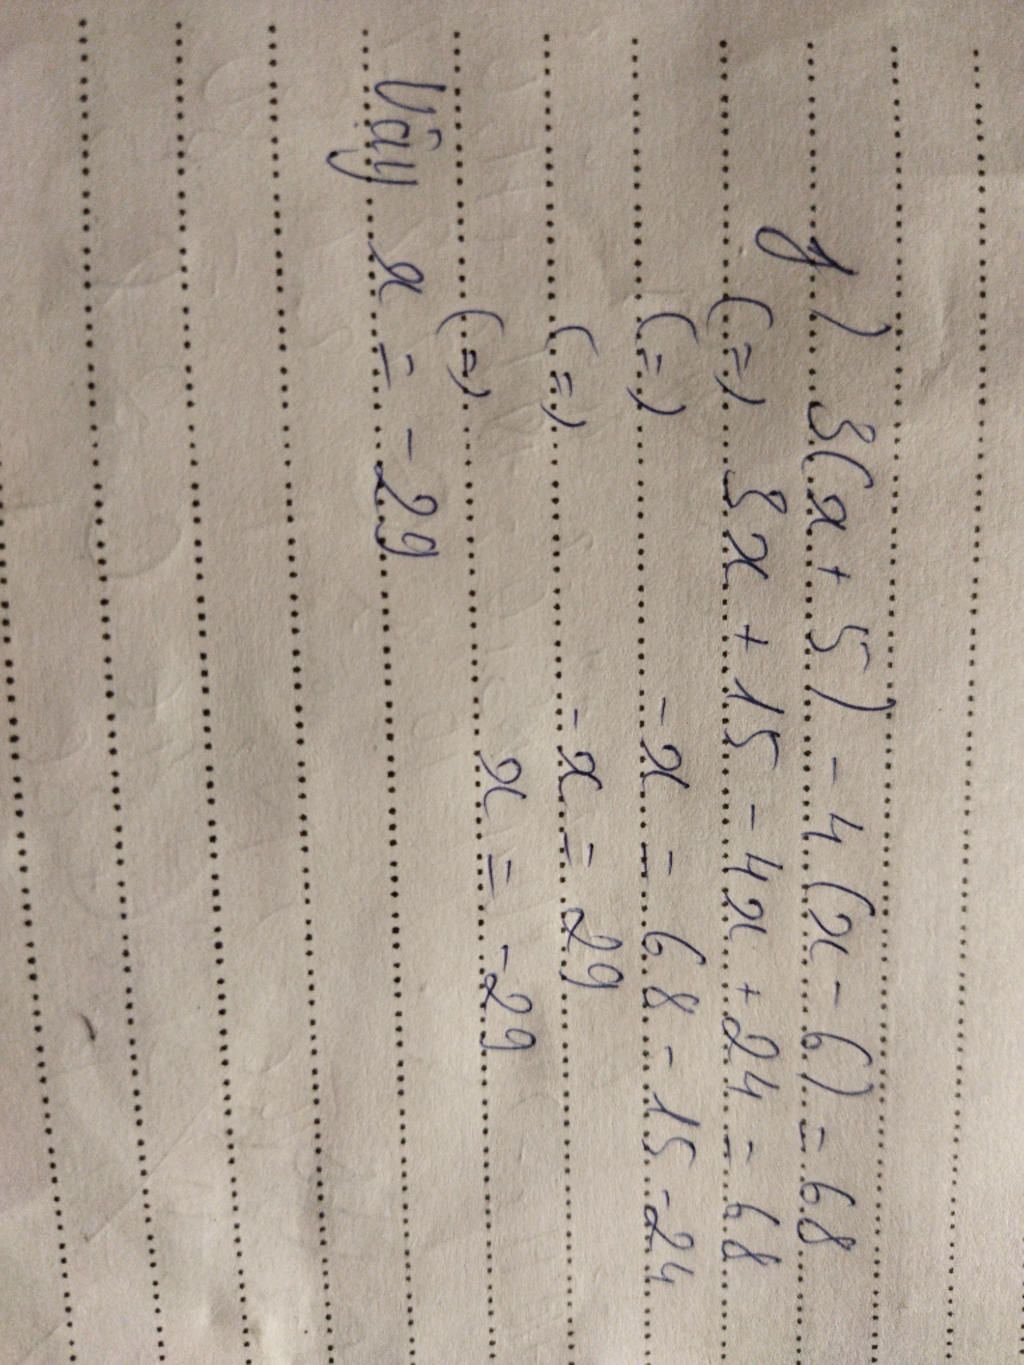 g) 3(x + 5) - 4(x - 6) = 68
(=) 3x + 15 - 4x + 24 = 68
(=) -x = 68 - 15 - 24
(=) -x = 29
(=) x = -29
Vậy x = -29